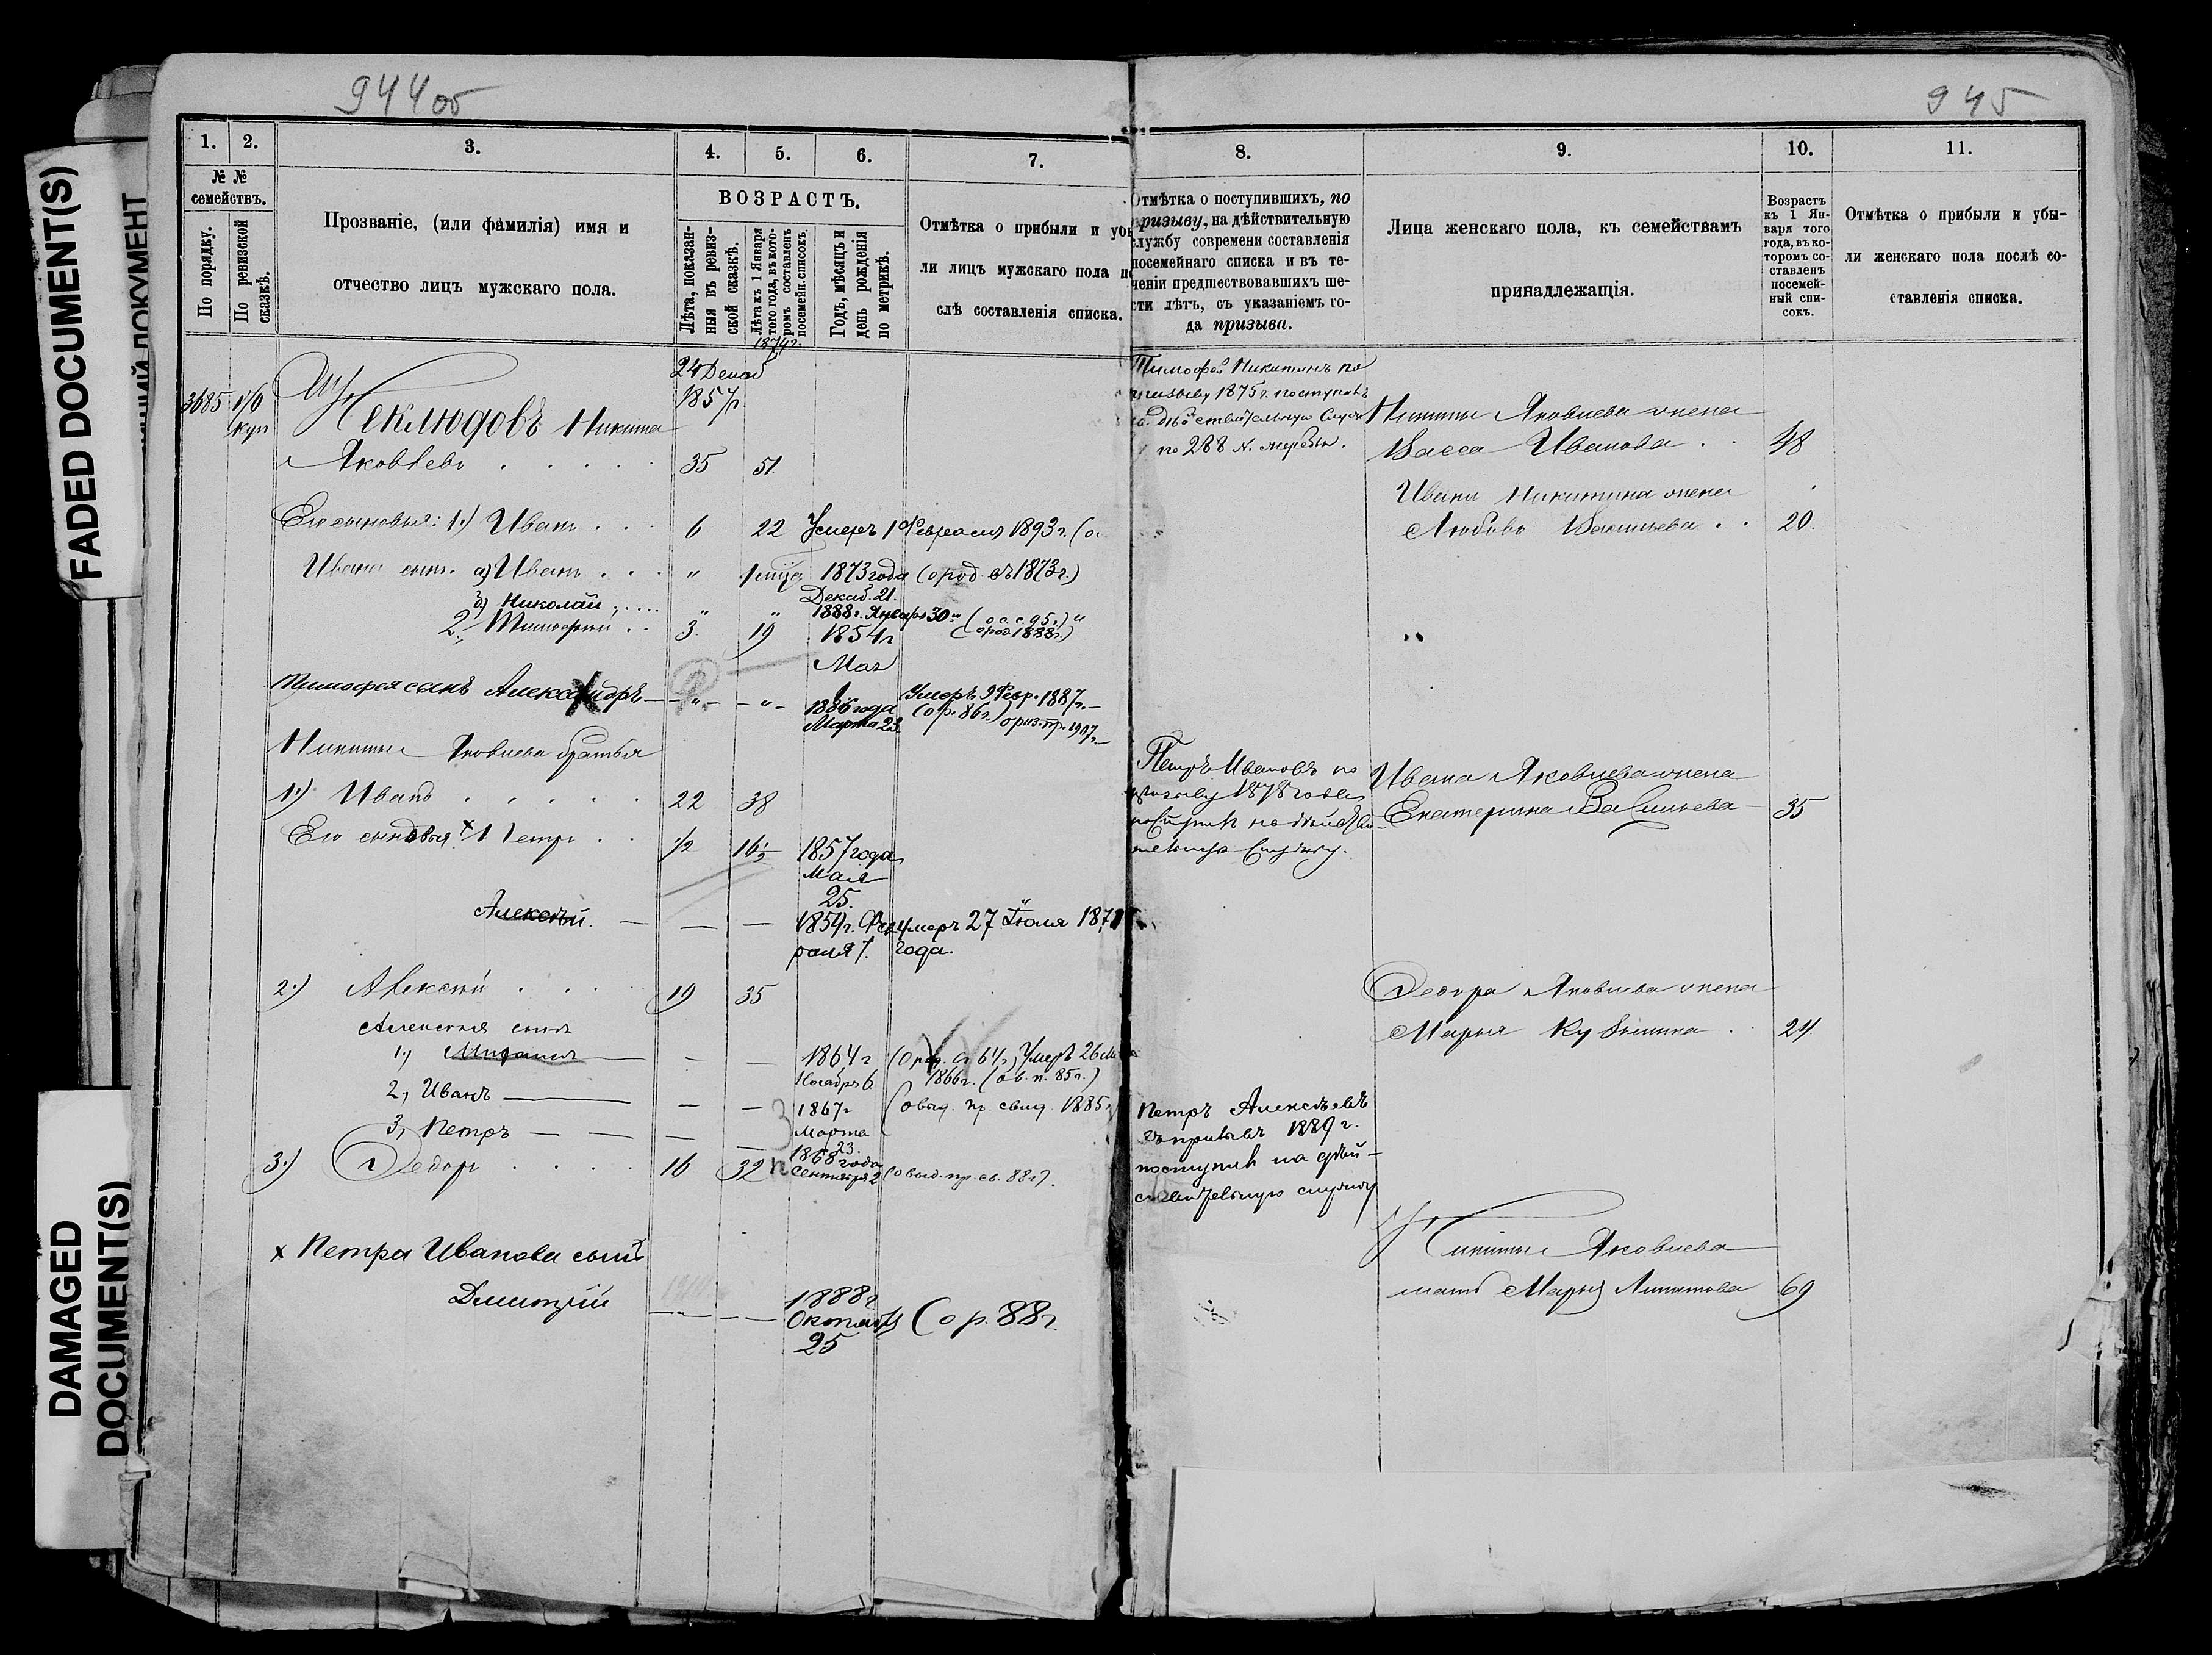 944об
945
FADED DOCUMENT(S)
DAMAGED
DOCUMENT(S)
1. 2. 3. 4. 5. 6. 7.
№ №
семействъ.
По порядку.
По ревизской сказкѣ.
Прозваніе, (или фамилія) имя и
отчество лицъ мужскаго пола.
ВОЗРАСТЪ.
Лѣта, показан-
ныя въ ревиз-
ской сказкѣ.
Лѣта къ 1 Января
того года, въ кото-
ромъ составленъ
посемейн. списокъ.
1874 г.
Годъ, мѣсяцъ и
день рожденія
по метрикѣ.
Отмѣтка о прибыли и убы
ли лицъ мужскаго пола п
слѣ составленія списка.
8. 9. 10. 11.
Отмѣтка о поступившихъ, по
призыву, на дѣйствительную
службу современи составленія
посемейнаго списка и въ те-
ченіи предшествовавшихъ ше-
сти лѣтъ, съ указаніемъ го-
да призыва.
Лица женскаго пола, къ семействамъ
принадлежащія.
Возрастъ
къ 1 Ян-
варя того
года, въ ко-
торомъ со-
ставленъ
посемей-
ный спи-
сокъ.
Отмѣтка о прибыли и убы-
ли женскаго пола послѣ со-
ставленія списка.
24 Декаб
1857 г
3685 Неклюдовъ Никита
Яковлевъ 35 51
Его сыновья: 1.) Иванъ 6 22 Умеръ 1 Февраля 1893 г.
Ивана сынъ а) Иванъ " 1873 года (о род. въ 1873 г.)
Декаб. 21.
Николай " " 1888 г. Января 30
2. Тимофей 3 19 1854 г (о род 1888 г.)
Мая
Тимофея сынъ Александръ — " — — " — 1886 года Умеръ 9 Февр. 1887 г. —
Марта 23. (о р. 86 г.)
Никиты Яковлева братья
1.) Иванъ 22 38
Его сыновья: х Петръ ½ 16½ 1857 года
Мая
25.
Алексѣй. — — — 1859 г. Фев умеръ 27 Іюля
раля 7. года.
2.) Алексѣй 19 35
Алексѣя сынъ
1.) Михаилъ — — 1864 г
Ноября 6
2, Иванъ — — — 1867 г
Марта
23.
3, Петръ — — — — 1868 года
3.) Федоръ 16 32 Сентября 2 (о выд. пр. св. 88 г.).
х Петра Иванова сынъ
Дмитрій — — 1888 г
Октября (о р. 88 г.
25
Тимофей Никитинъ по
призыву 1875 г. поступилъ
дѣйствительную службу
по 288 №. жеребью.
Никиты Яковлева жена
Васса Иванова 48
Ивана Никитина жена
Любовь Васильева 20.
Петръ Ивановъ по
призыву 1878 года
поступилъ на дѣйстви-
тельную службу.
Ивана Яковлева жена
Екатерина Васильева — 35
Федора Яковлева жена
Марья Кузьмина 24
Петръ Алексѣевъ
въ призывъ 1889 г.
поступилъ на дѣй-
ствительную службу
Никиты Яковлева
мать Марья Липатова 69